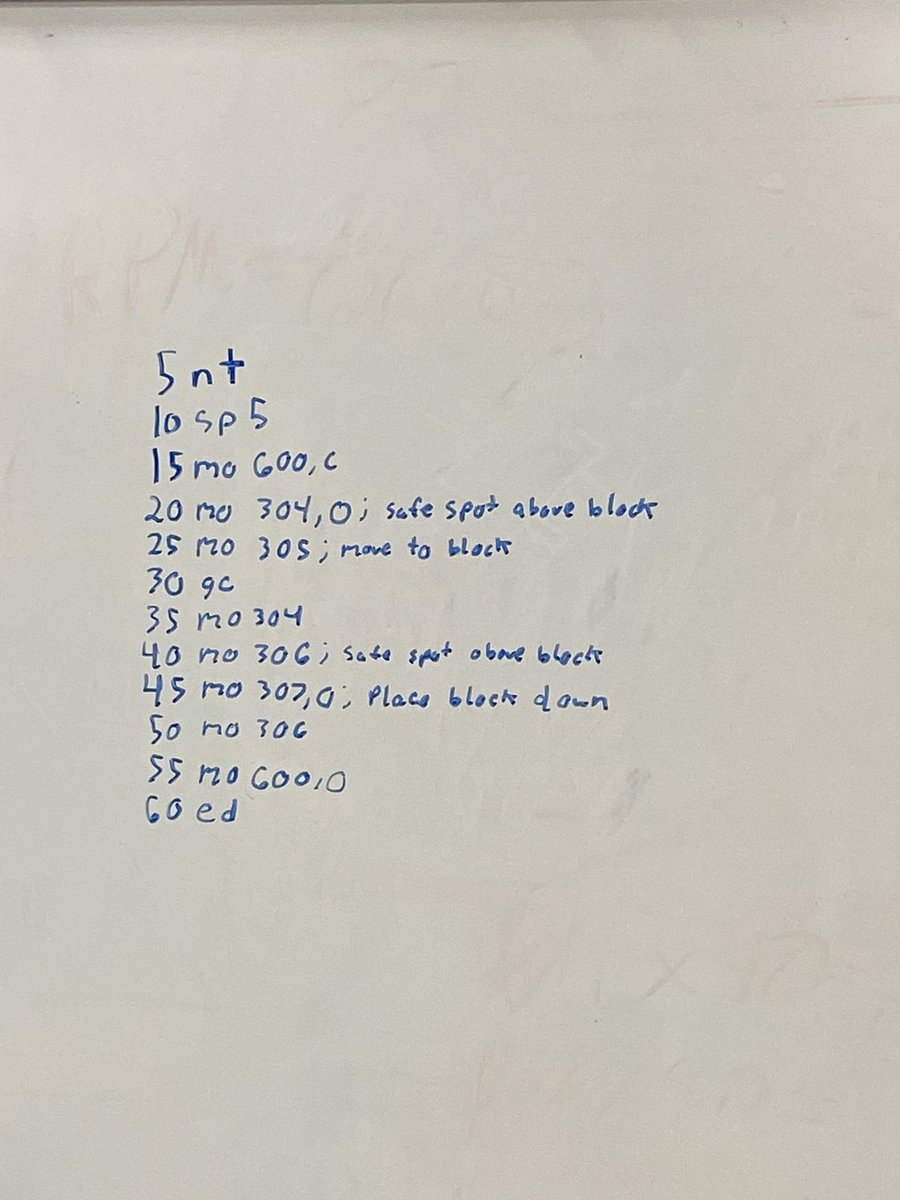 5 nt
10 sp 5
15 mo 600,c
20 mo 304,0; safe spot above block
25 mo 305; move to block
30 gc
35 mo 304
40 mo 306; safe spot above block
45 mo 307,0; Place block down
50 mo 306
55 mo 600,0
60 ed